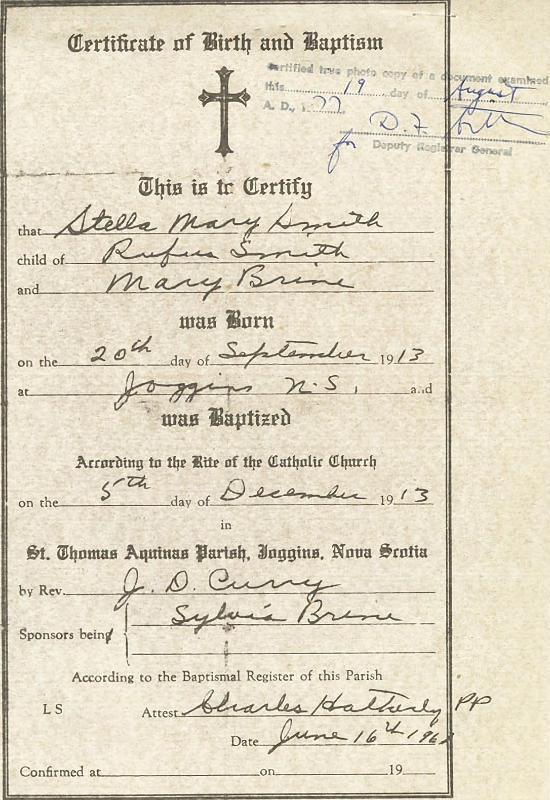 Certificate of Birth and Baptism
Certified true photo copy of a document examined
this 19 day of August
A. D., 1 77
D. F.
for Deputy Registrar General
This is to Certify
that Stella Mary Smith
child of Rufus Smith
and Mary Brine
was Born
on the 20th day of September 1913
at Joggins N.S. and
was Baptized
According to the Rite of the Catholic Church
on the 5th day of December 1913
in
St. Thomas Aquinas Parish, Joggins, Nova Scotia
by Rev. J. D. Curry
Sylvia Brine
Sponsors being
According to the Baptismal Register of this Parish
L S Attest Charles Hatterly PP
Date June 16th
Confirmed at on 19